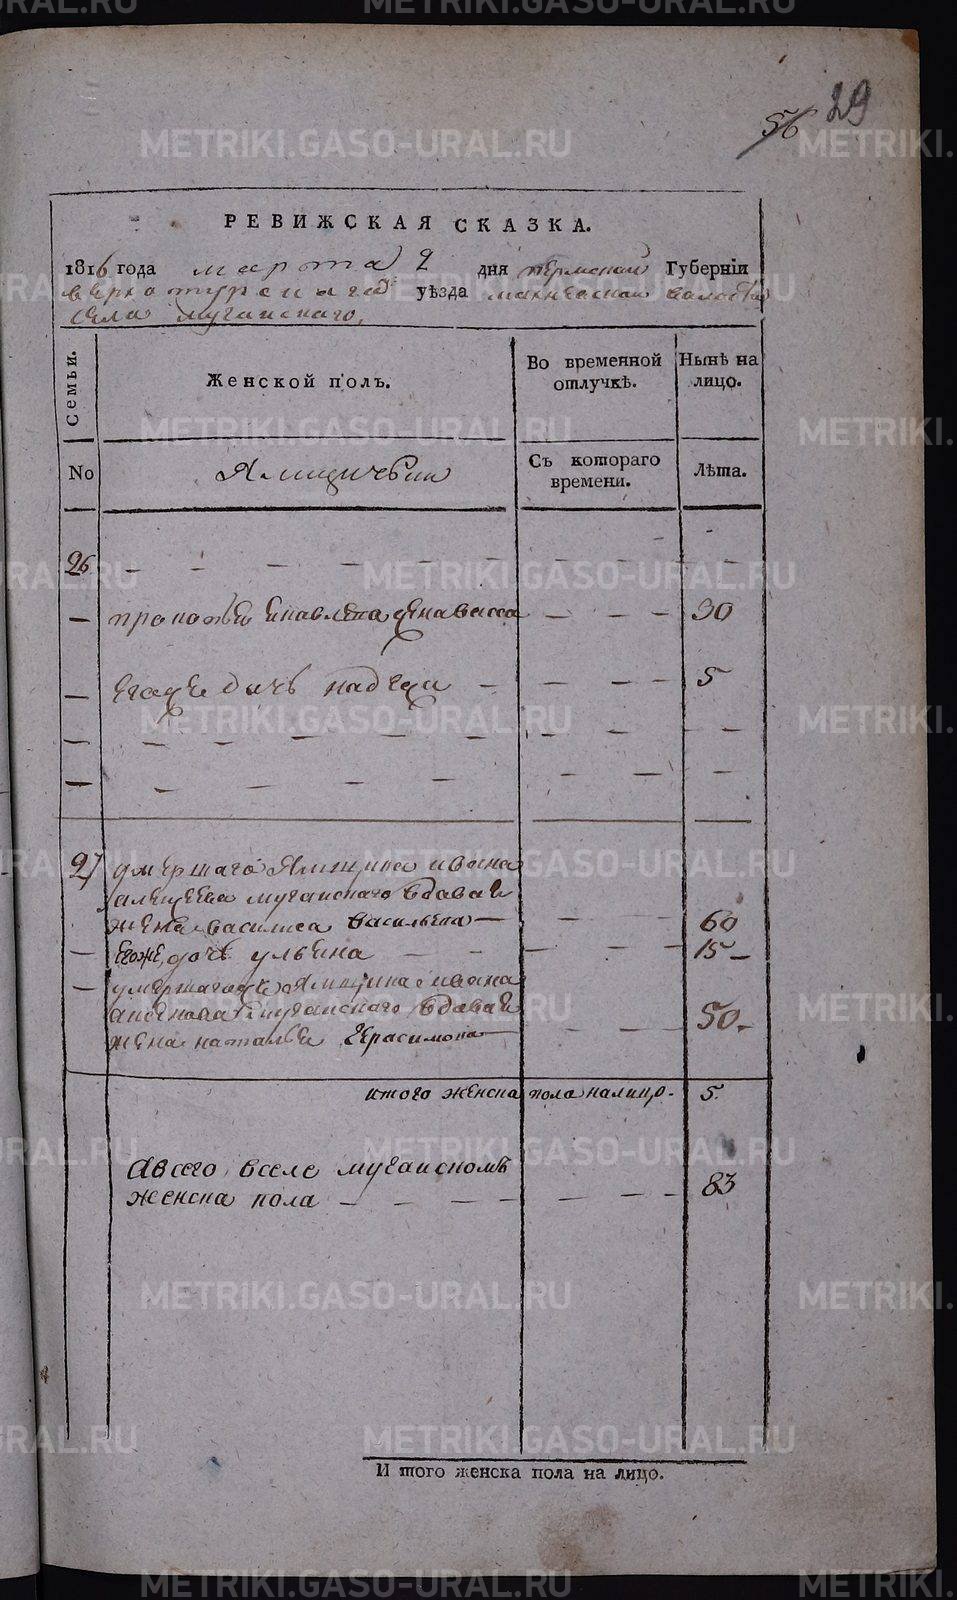 METRIKI.GASO-URAL.RU
56 29
РЕВИЖСКАЯ СКАЗКА.
1816 года марта 2 дня пермской Губернїи
верхотурскаго уѣзда махневской волости
села мугайскаго,
Семьи.
Женской полъ.
Во временной отлучкѣ.
Нынѣ на лицо.
No
Ямщичьи
Съ котораго времени.
Лѣта.
26 — — — — — — — —
— прокопьи жена васса — — — 30
— егоже дочь надежда — — — — 5
— — — — — — — — —
— — — — — — — —
27 умершаго Ямщика ивана
алексеева мугайскаго вдовая
жена василиса васильева — — — 60
— егоже, дочь ульяна — — — — — 15 —
— умершагоже Ямщика ивана
мугайскаго вдовая
жена наталья Герасимова — — — 50 —
итого женска пола налицо. 5.
Авсего вселе мугайскомъ
женска пола — — — — — — — 83
И того женска пола на лицо.